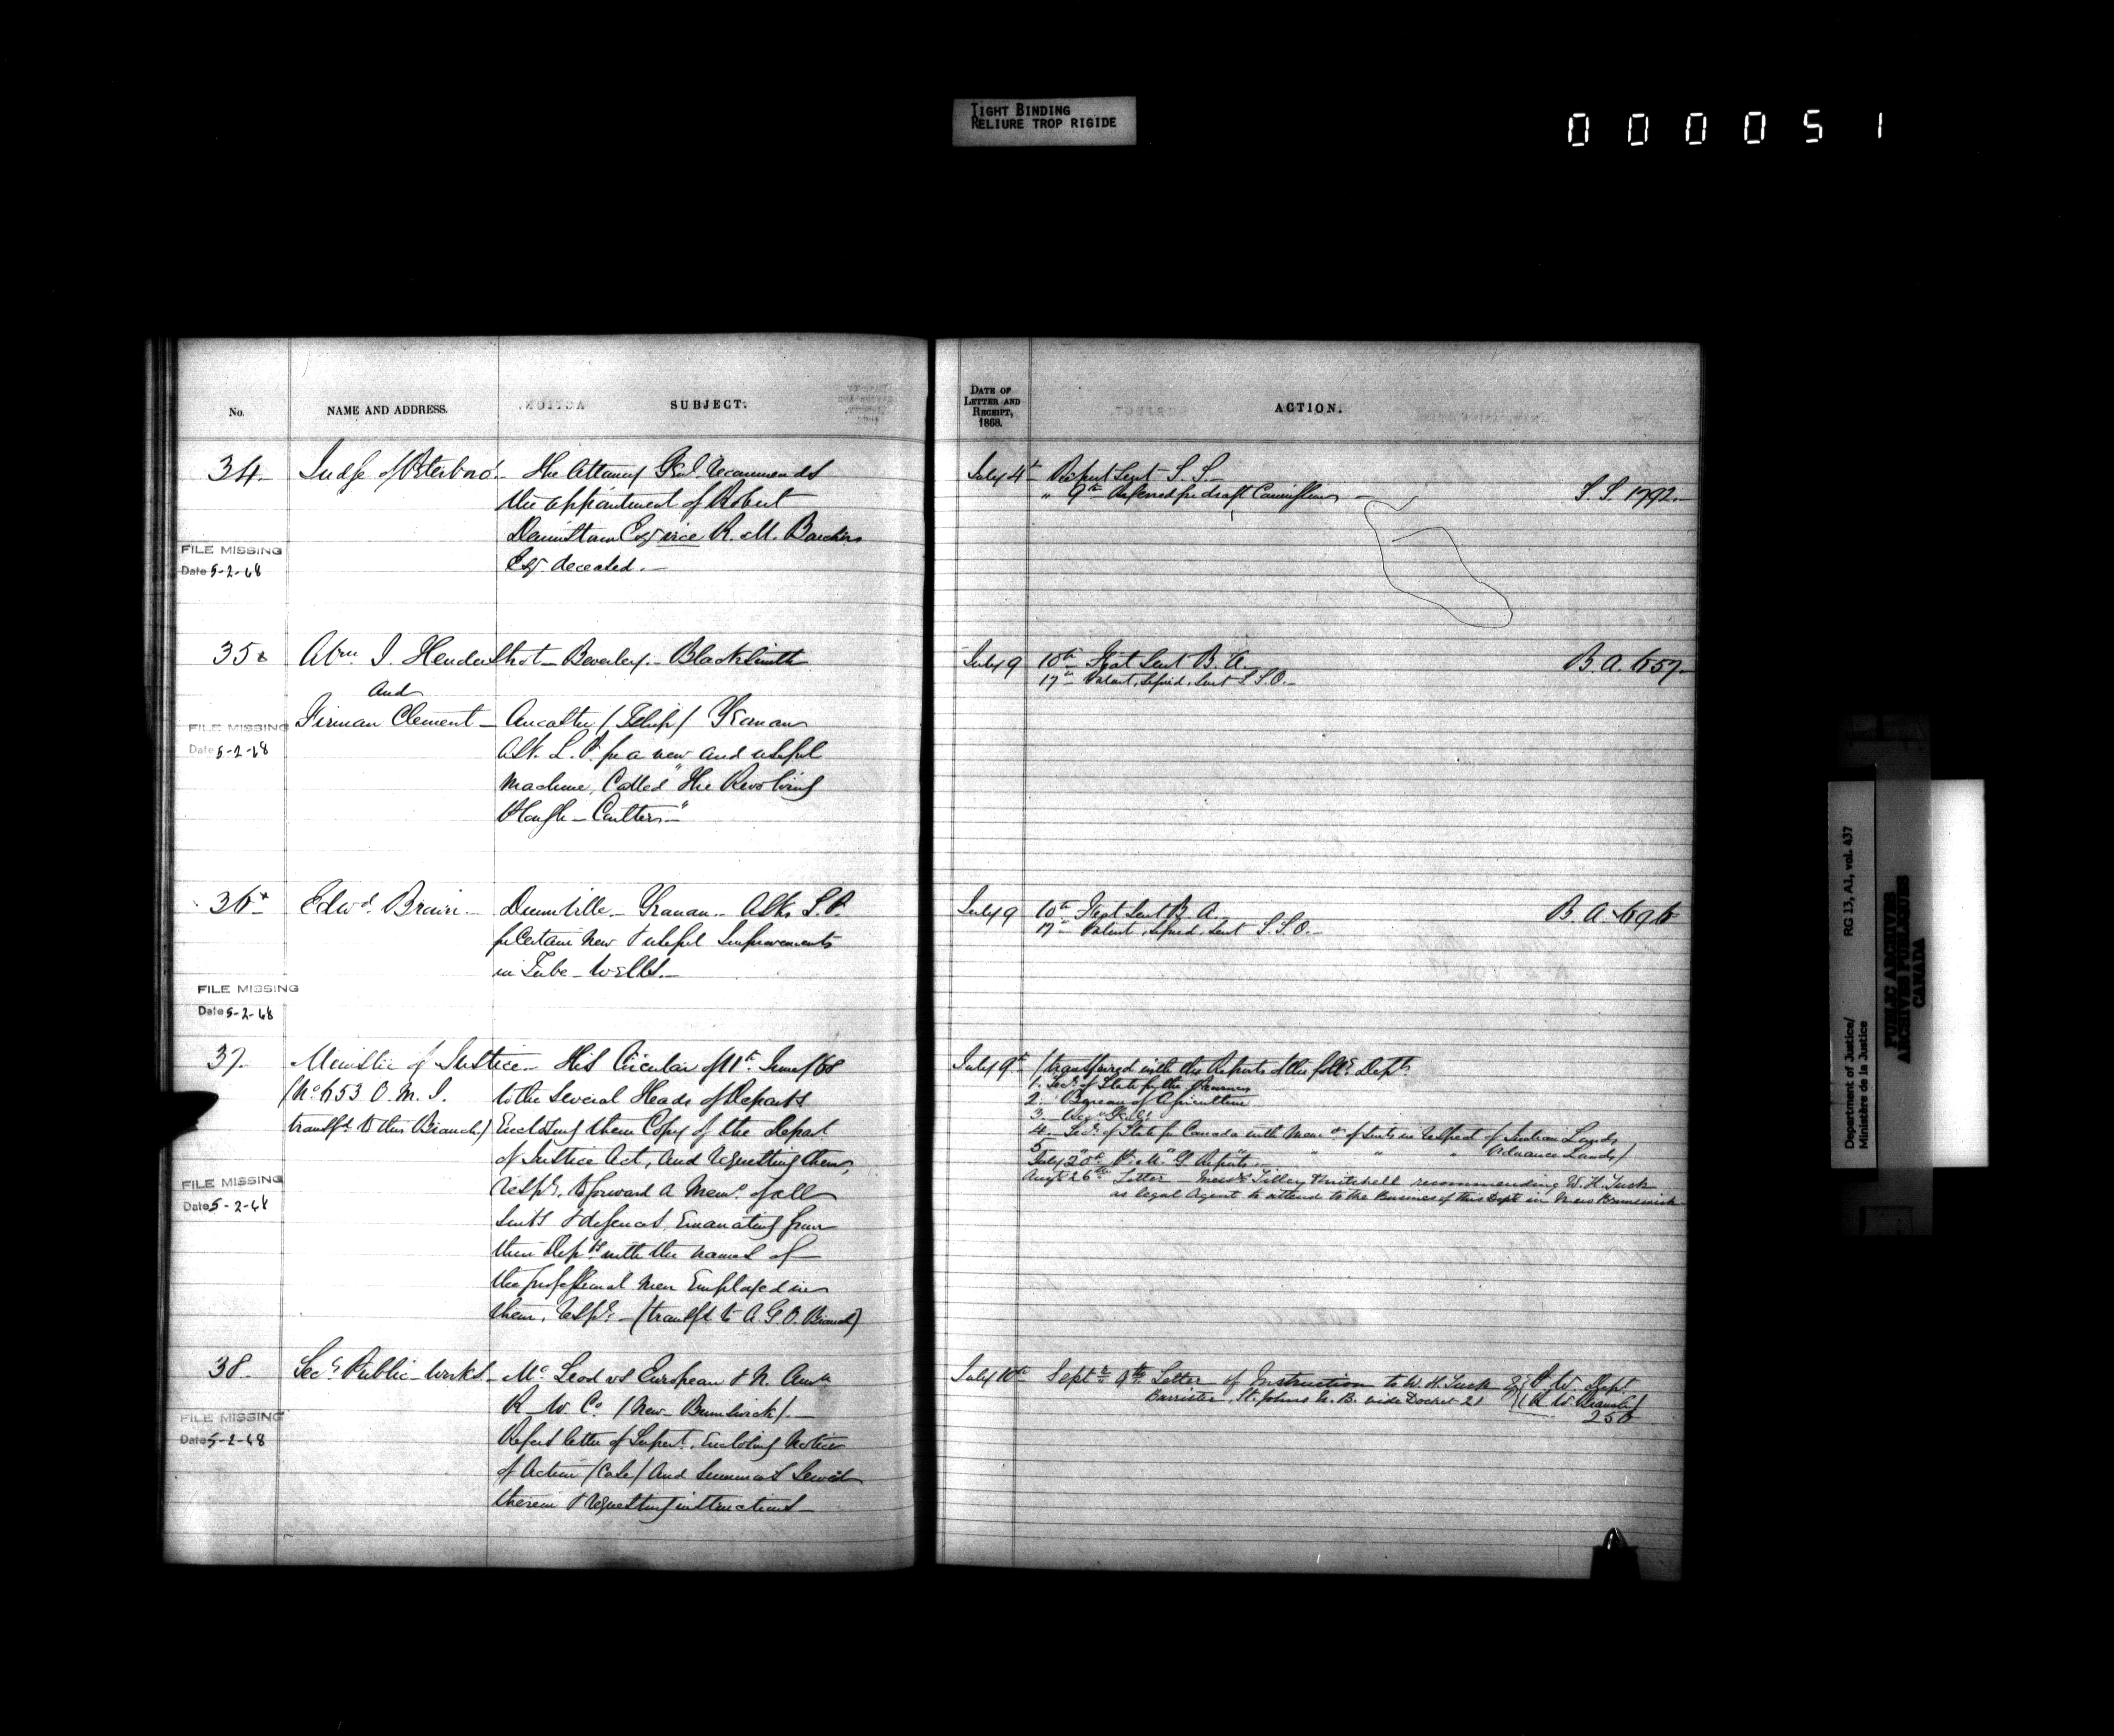 TIGHT BINDING
RELIURE TROP RIGIDE
000051
No.
NAME AND ADDRESS.
SUBJECT.
34. Judge of Peterboro'. The Attorney Genl. recommends
the appointment of Robert
Dennistown Esq vice R. M. Boucher
Esq. deceased.
FILE MISSING
Date 5-2-68
35 Abm. I. Hendershot Beverley. Blacksmith
and
Firman Clement Ancaster / Tship / Yeoman
FILE MISSING
Date 5-2-68
Ask L. P. for a new and useful
machine, called "The Revolving
Plough-Coulter"
36 Edwd. Brown Dunnville. Yeoman. Asks L. P.
for certain new & useful Improvements
in Tube-Wells.
FILE MISSING
Date 5-2-68
37. Minister of Justice. His Circular of 11th. June/68
(No. 653 O. M. J. to the several Heads of Departs
transfd. to this Branch) Enclosing them Copy of the Depart.
of Justice Act, and requesting them,
FILE MISSING
Date 5-2-68
respy. to forward a Memo. of all
suits & defences, Emanating from
their Depts. with the names of
the professional men Employed in
them, respy. (transfd. to A. G. O. Branch)
38. Secy. Public Works. McLeod vs European & N. Amn
R. W. Co. (New Brunswick).
FILE MISSING
Date 5-2-68
Refers letter of Supert. Enclosing Notice
of Action (Case) and Summons served
therein & requesting instructions
DATE OF
LETTER AND
RECEIPT,
1868.
ACTION.
July 4th Report sent S. S.
" 9th Referred for draft Commission S. S. 1792.
July 9 10th Fiat sent B. A. B. A. 657
17th Patent, signed, sent S. S. O.
July 9 10th Fiat sent B. A. B. A. 696
17th Patent, signed, sent S. S. O.
July 9th (transferred with the Reports of the follg. Depts
1. Secy. of State for the Provinces
2. Bureau of Agriculture
3.
4. Secy. of State for Canada with Memo. of suits in respect of Indian Lands
5. " " " " Ordnance Lands)
July 20th P. M. G. Reports
Augt. 26th Letter Messrs. Tilley & Mitchell recommending W. H. Tuck
as legal Agent to attend to the Business of this Dept in New Brunswick
July 10th Septr. 9th Letter of Instruction to W. H. Tuck Esq P. W. Dept
Barrister, St. Johns N. B. vide Docket 21 (R. W. Branch)
256
Department of Justice/
Ministère de la Justice
RG 13, A1, vol. 437
PUBLIC ARCHIVES
ARCHIVES PUBLIQUES
CANADA